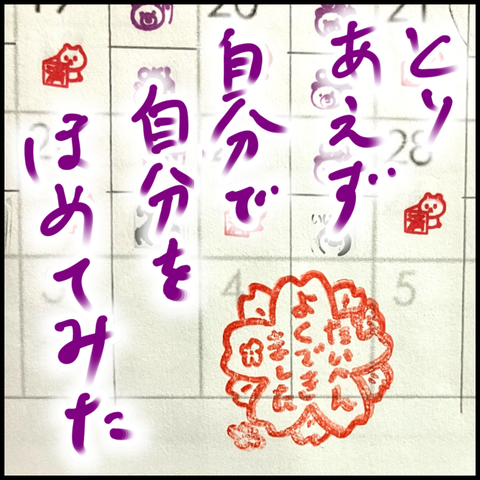 とり
あえず
自分で
自分を
ほめてみた
たいへん
よくでき
ました
済
済
いい
28
4
5